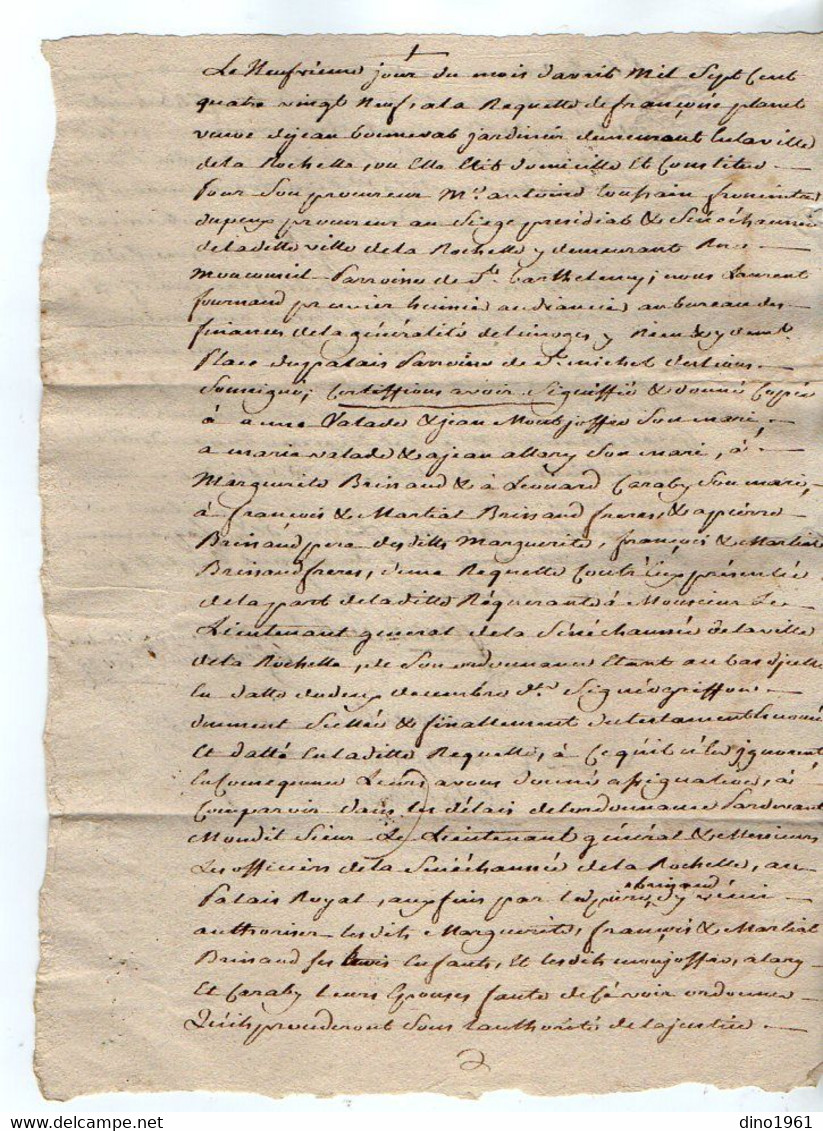 Le Neufvieme jour du mois davril Mil Sept Cent
quatre vingt Neuf, ala Requette de françoise planet
veuve dejean bonneval jardinier demeurant enlaville
dela Rochelle, ou Elle Elit domicille Et Constitue
Pour Son procureur Me. antoine toussain
dupeux procureur au Siege presidial & Sénéchaussée
deladitte ville dela Rochelle y demeurant Rue
Monconseil Parroisse de St. barthelemy; nous Laurent
fournaud premier huissier audiancier au bureau des
finances dela généralité delimoges y Reçu & y demt.
Place dupalais Parroisse de St. michel deslions
Soussigné, Certiffions avoir Signiffié & donné Copie
à anne Valade & jean Montjoffre Son mari,
a marie valade & ajean allary Son mari, à
Marguerite Brissaud & à Léonard Caraby Son mari,
à François & Martial Brissaud freres, & apierre
Brissaud pere desdits Marguerite, françois & Martial
Brissaud freres, dune Requette Contr'Eux présentée
dela part deladitte Réquerante à Monsieur Le
Lieutenant general dela Sénéchaussée delaville
dela Rochelle, de Son ordonnance Etant au bas dycelle
En datte dudeux decembre dr. Signé griffon
duement Scellée & finallement dutestament Enoncé
Et datté Enladitte Requette, à Cequil n'En ignorent
EnConsequence Leurs avons donné assignation, à
Comparoir dans les délais delordonnance Pardevant
Mondit Sieur Le Lieutenant général & Messieurs
Les officiers dela Sénéchaussée dela Rochelle, au
Palais Royal, aux fins par led pierre brissaud dy venir
authoriser lesdits Marguerite, françois & Martial
Brissaud ses trois Enfants, Et lesdits monjoffre, alary
Et Caraby Leurs Epouses faute de Ce voir ordonner
Qu'ils prouderont Sous l'authorité delajustice
2
dino1961